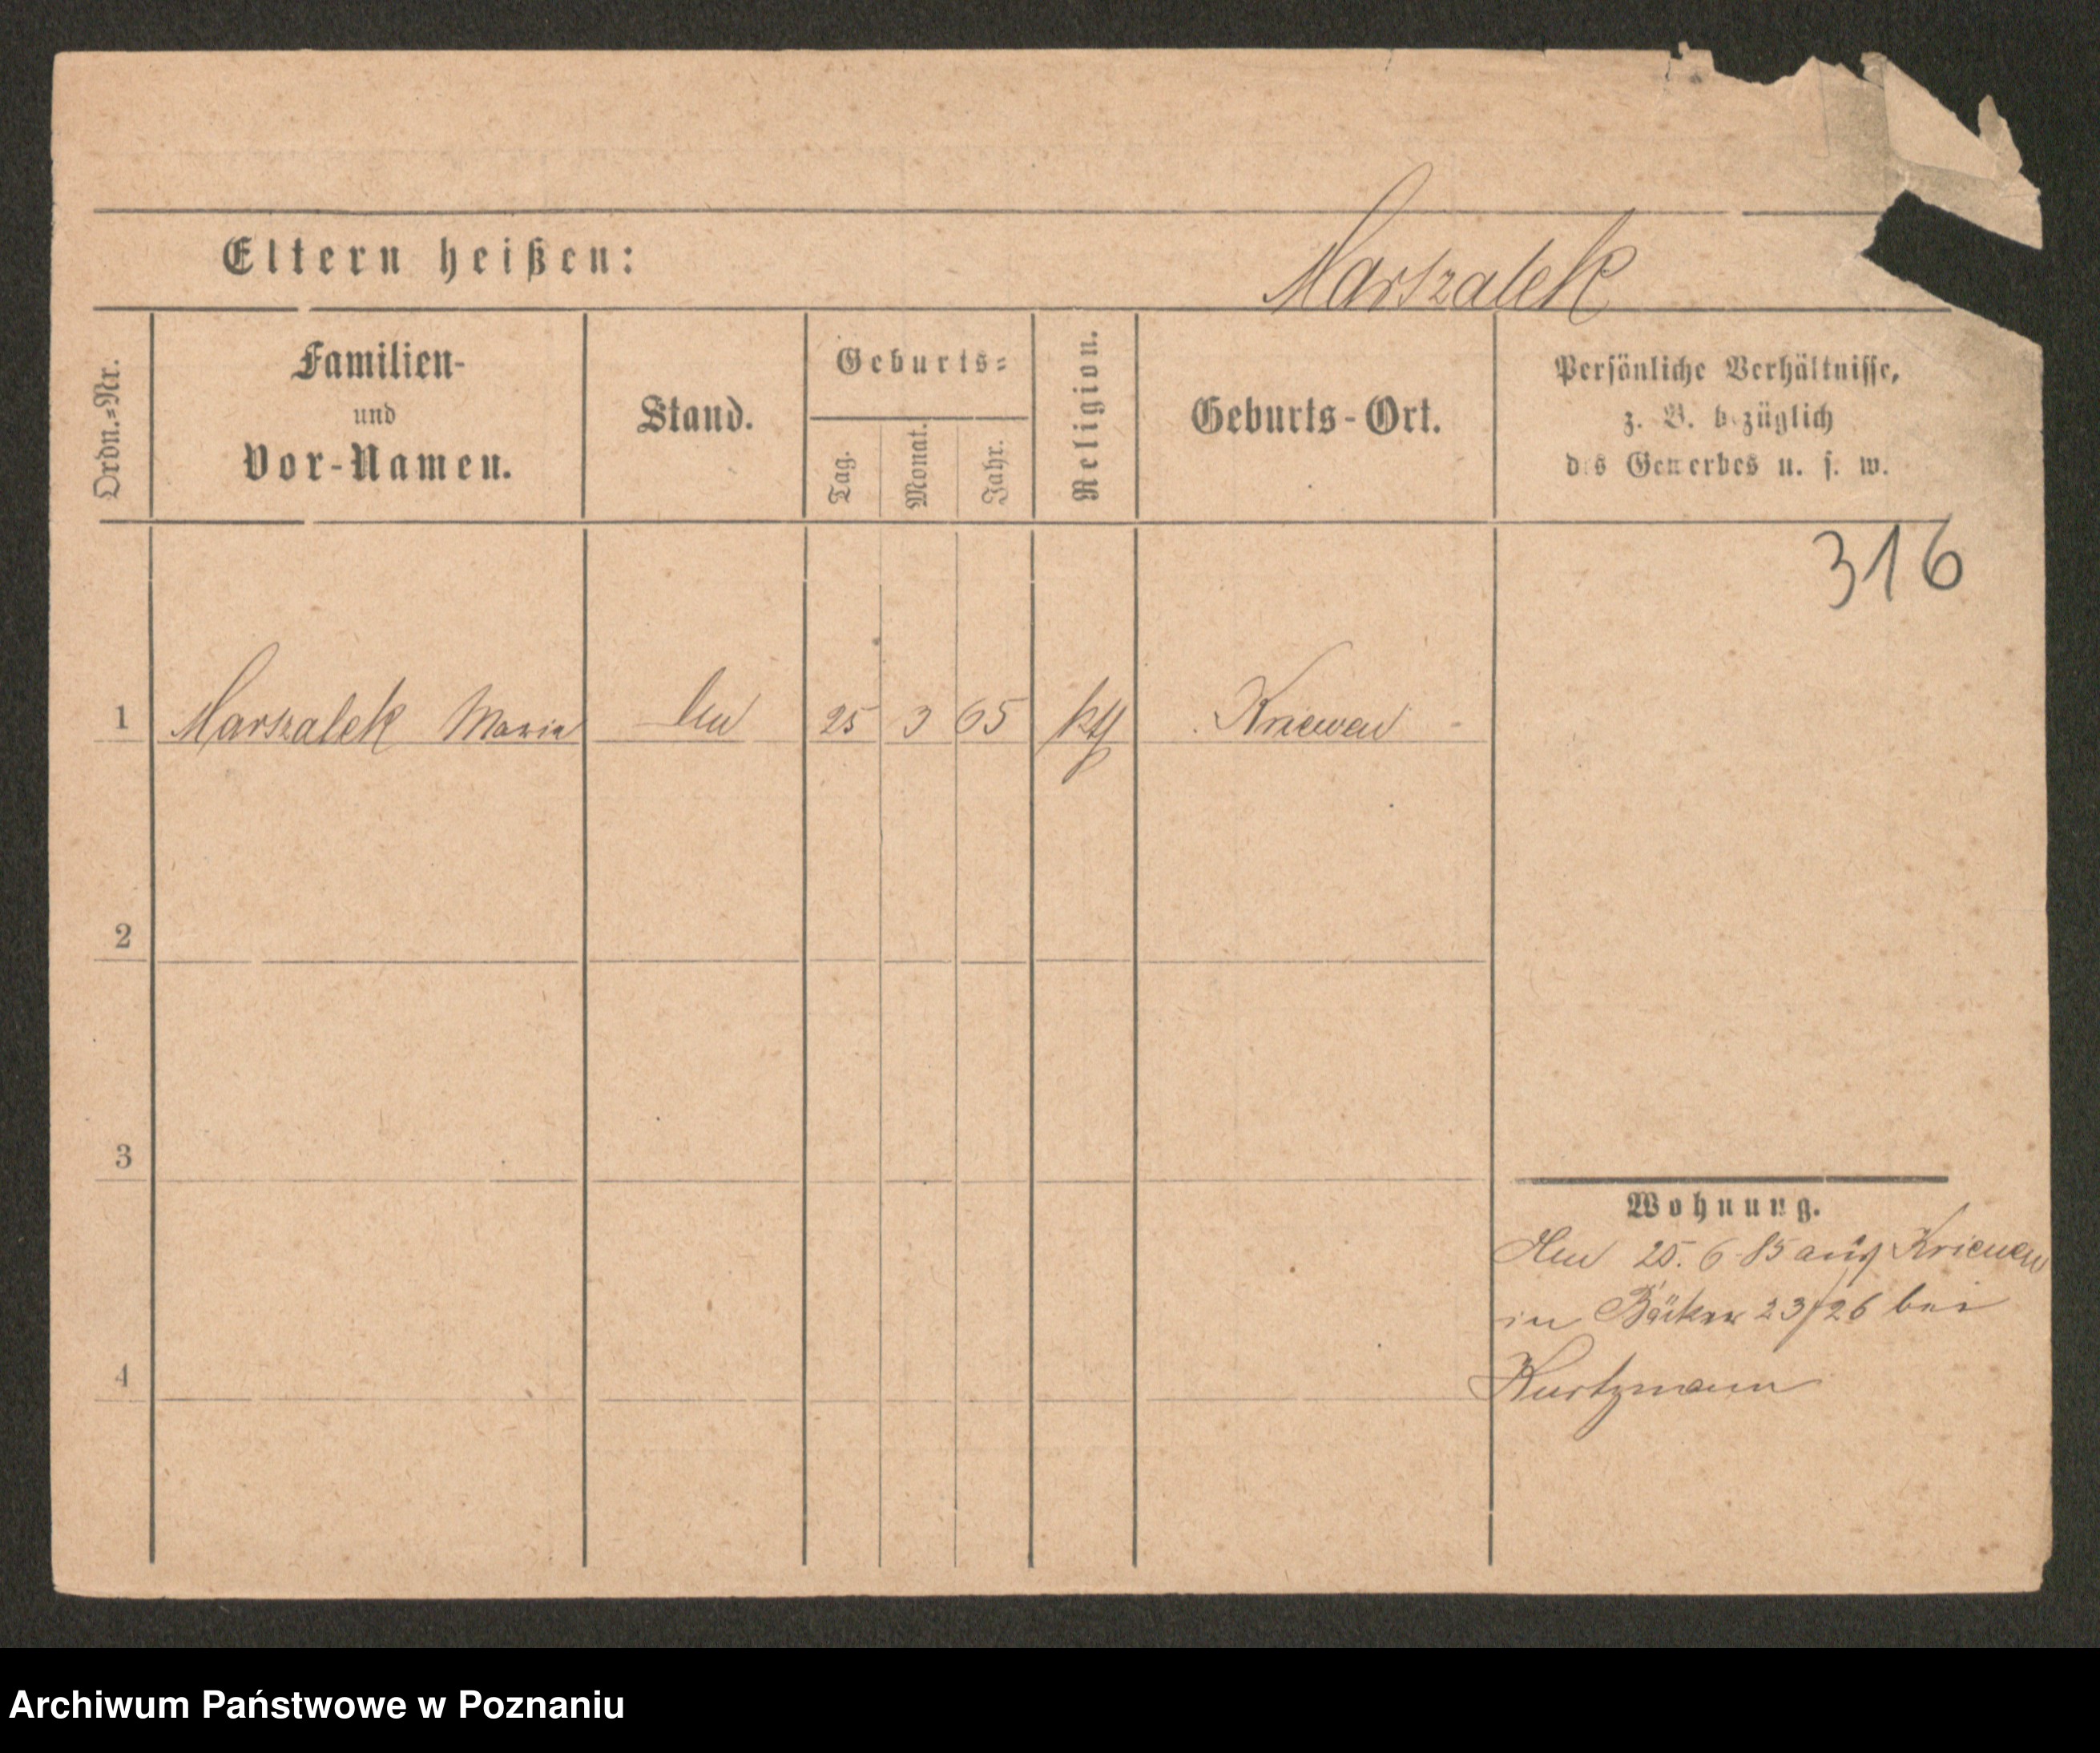 Eltern heißen:
Marszalek
Ordn.=Nr.
Familien-
und
Vor-Namen.
Stand.
Geburts=
Tag.
Monat.
Jahr.
Religion.
Geburts-Ort.
Persönliche Verhältnisse,
z. B. bezüglich
des Gewerbes u. s. w.
316
1 Marszalek Maria 25 3 65 kth Kriewen
2
3
4
Wohnung.
25. 6 85 aus Kriewen
in Bäcker 23/26 bei
Kurtzmann
Archiwum Państwowe w Poznaniu